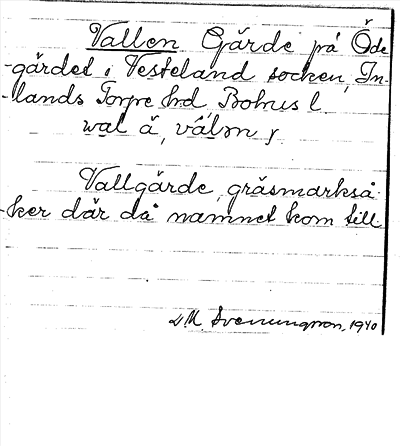 Vallen Gärde på Öde
-gärdet i Vesteland socken, In-
-lands Torpe hd Bohus l.
wal å, vålm
Vallgärde, gräsmarkså-
-ker där då namnet kom till.
M. Svenungsson, 1940